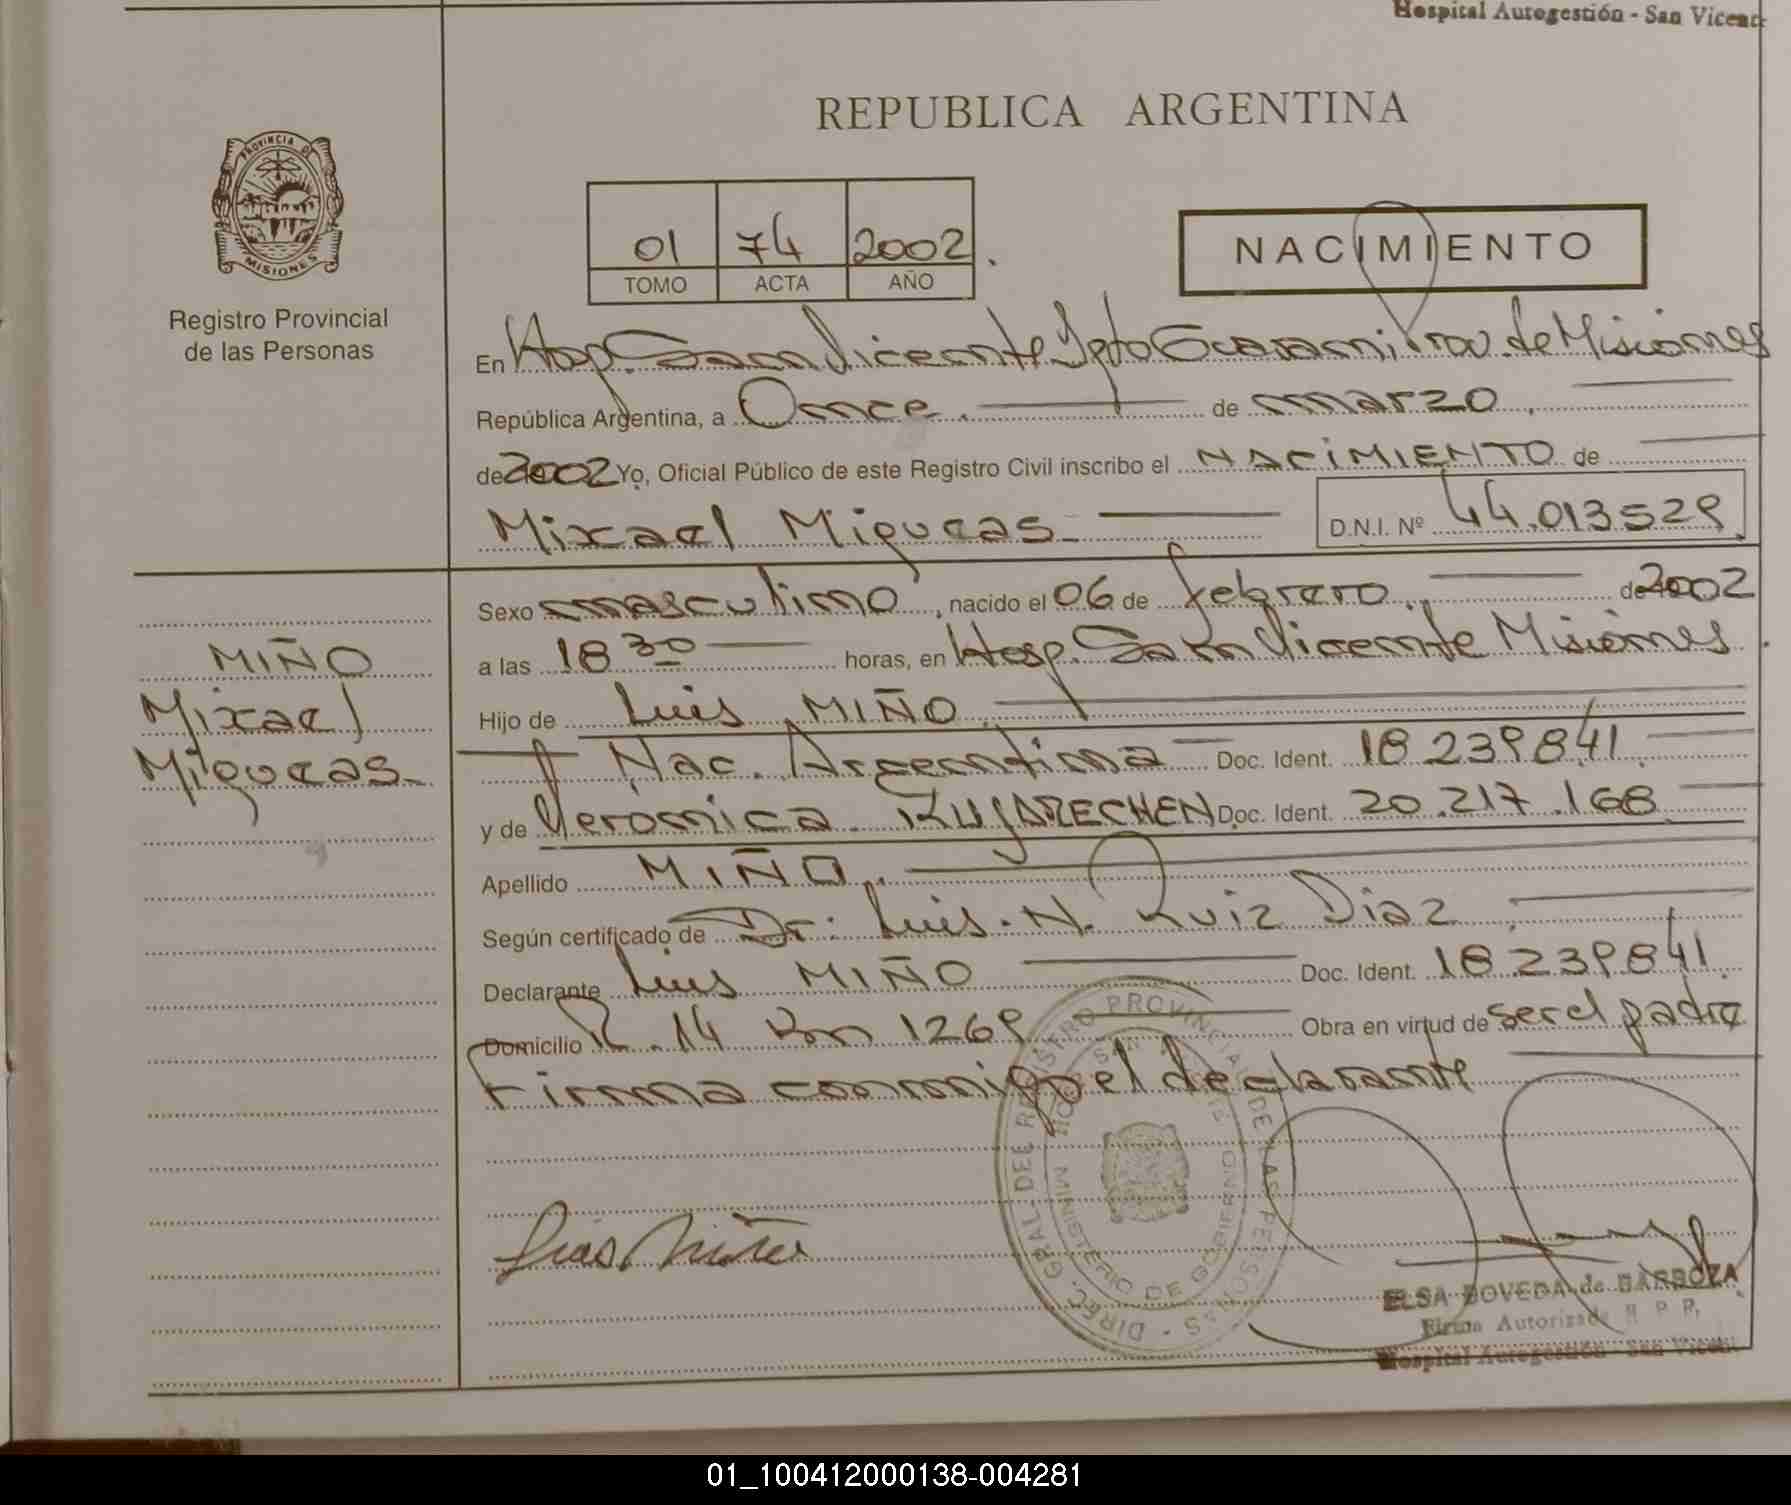 Hospital Autogestión - San Vicente
REPUBLICA ARGENTINA
PROVINCIA DE
MISIONES
Registro Provincial
de las Personas
01 74 2002.
TOMO ACTA AÑO
NACIMIENTO
En Hosp. San Vicente Dpto Guarani Prov. de Misiones
República Argentina, a Once. de marzo.
de 2002 Yo, Oficial Público de este Registro Civil inscribo el NACIMIENTO de
Mixael Miqueas D.N.I. Nº 44.013529
Sexo masculino, nacido el 06 de febrero. de 2002
a las 18 30 horas, en Hosp. San Vicente Misiones
Hijo de Luis MIÑO
Nac. Argentina Doc. Ident. 18 239841
y de Veronica Doc. Ident. 20.217.168
Apellido MIÑO.
Según certificado de Dr: Luis. N. Ruiz Diaz
Declarante Luis MIÑO Doc. Ident. 18 239841.
Domicilio R. 14 Km 1269 Obra en virtud de ser el padre
Firma conmigo el declarante
MIÑO
Mixael
Miqueas
DIREC. GRAL. DEL REGISTRO PROVINCIAL DE LAS PERSONAS
MINISTERIO DE GOBIERNO
Luis Miño
ELSA BOVEDA de BARBOZA
Firma Autorizada R P P.
Hospital Autogestión - San Vicente
01_100412000138-004281